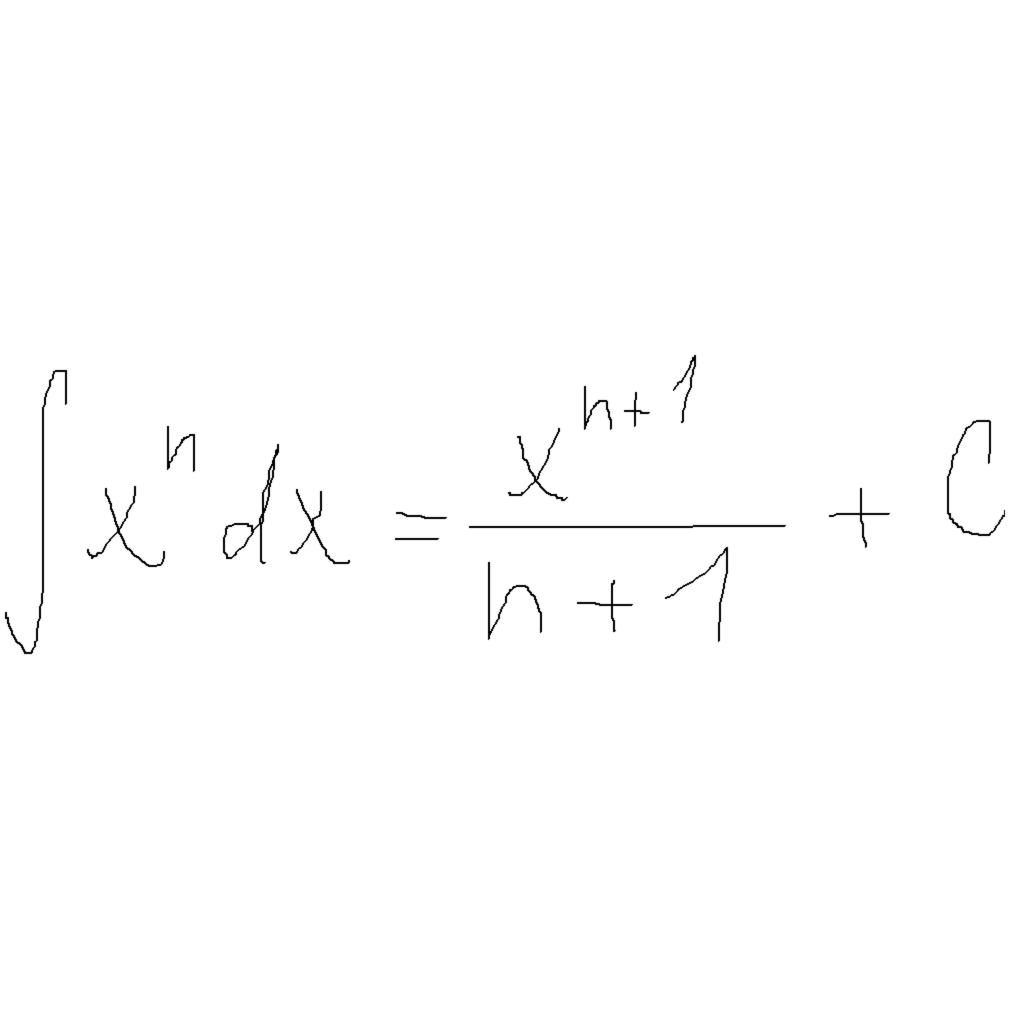 ∫ xⁿ dx = xⁿ⁺¹ / (n + 1) + C